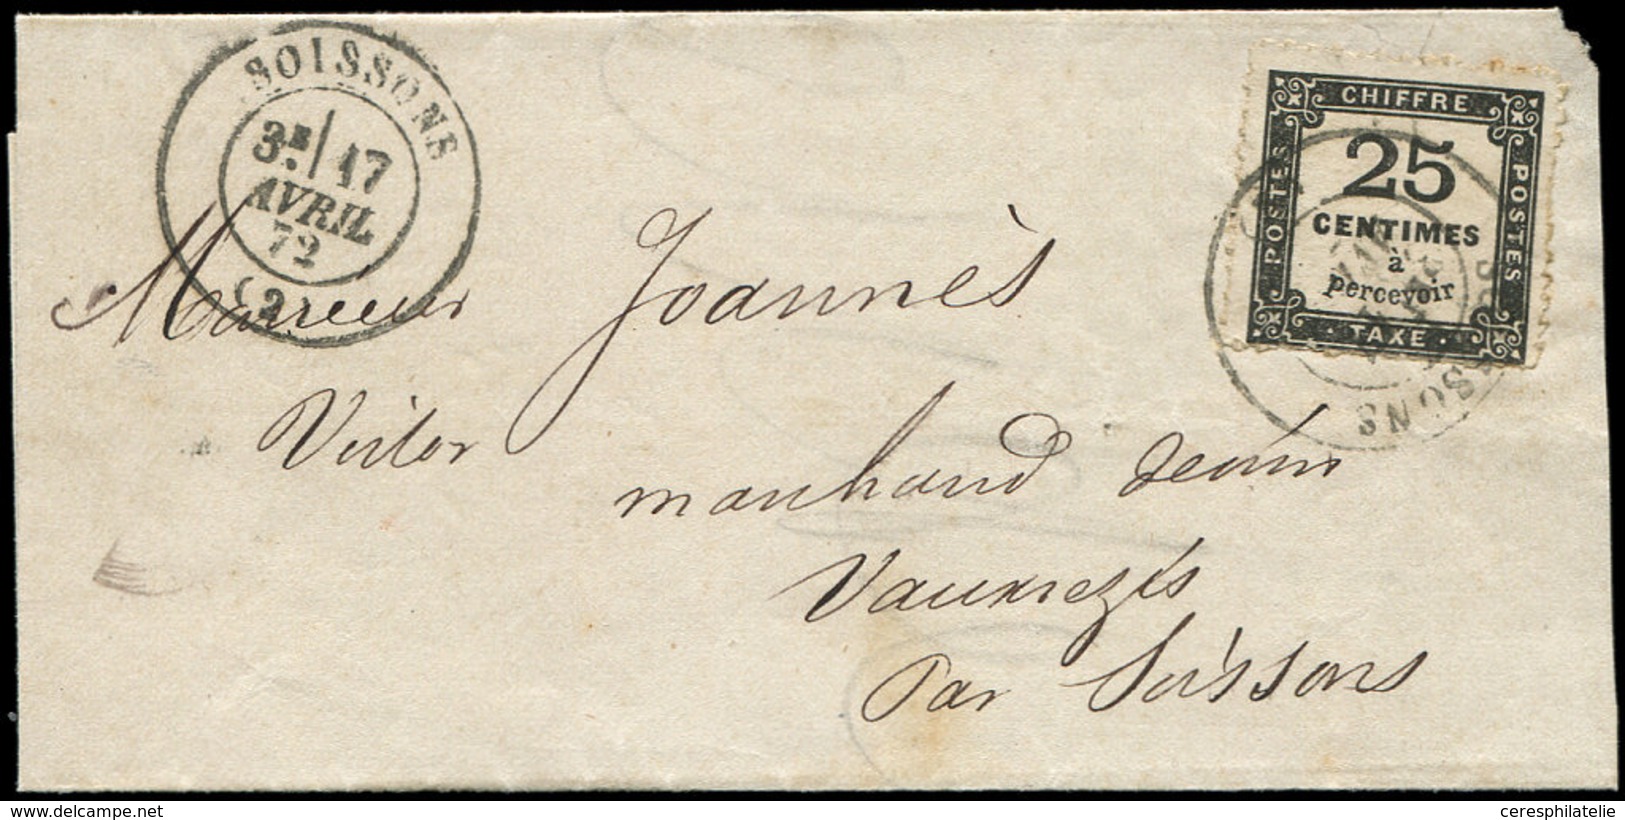 SOISSONS
3E/ 17
AVRIL
72
(2)
CHIFFRE
POSTES
25
CENTIMES
à
percevoir
POSTES
· TAXE ·
SOISSONS
Monsieur Joannès
Victor
marchand
Vauxrezis
Par Soissons
www.delcampe.net
ceresphilatelie